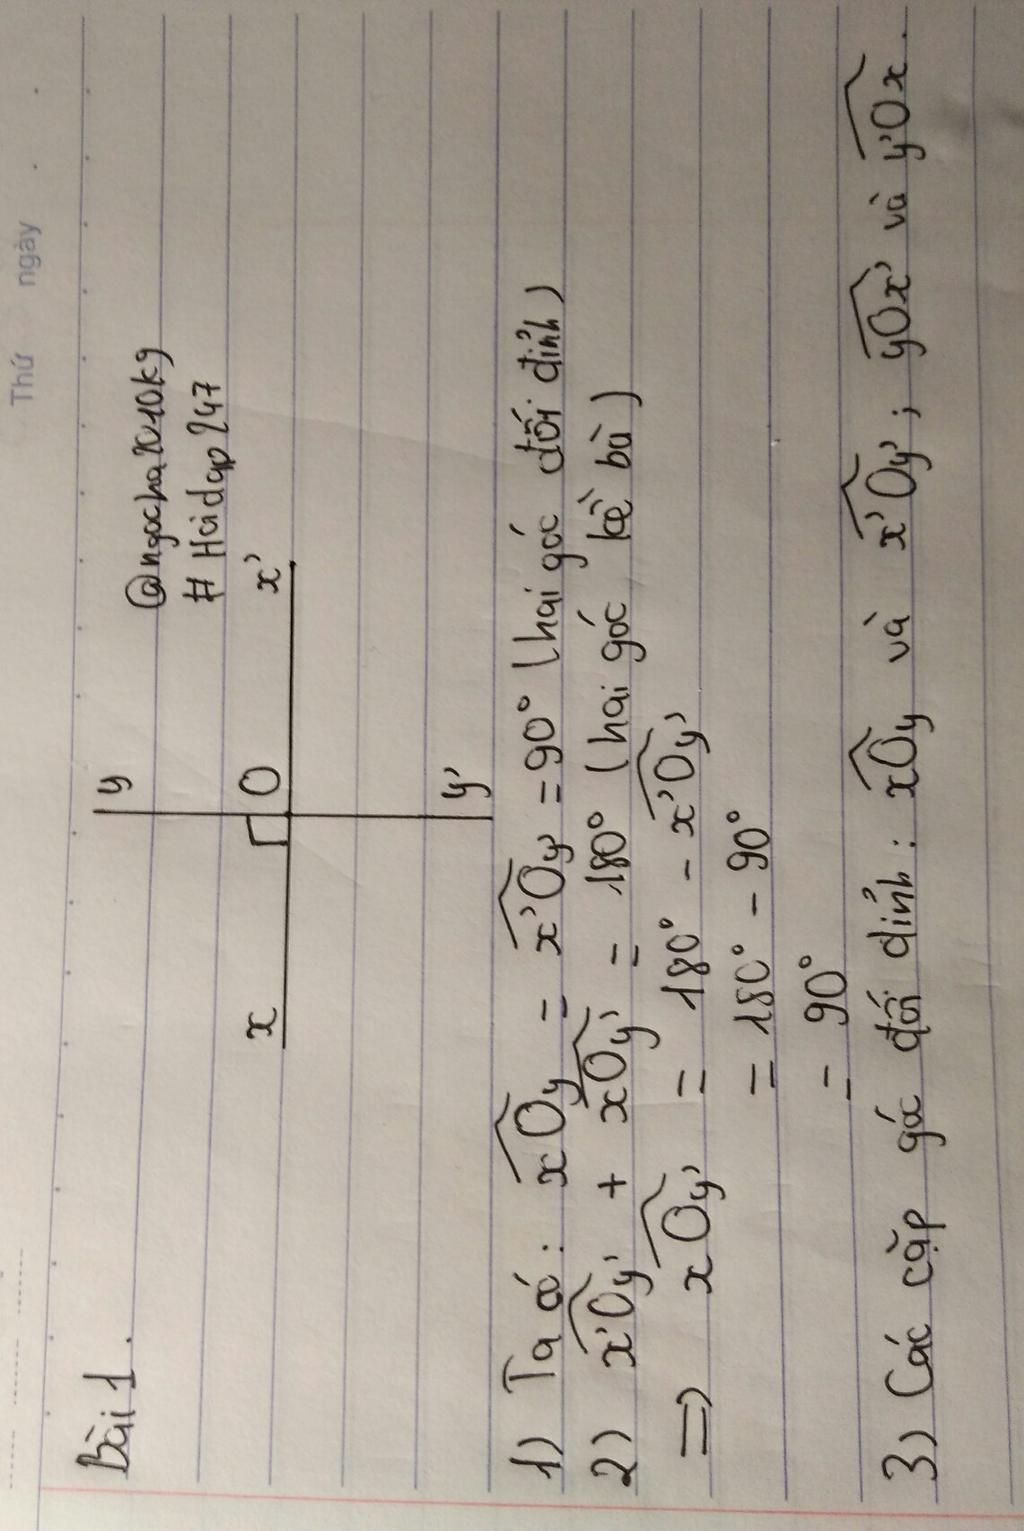 Thứ ngày
Bài 1.
@ngocha2010kg
# Hoidap247
y
x O x'
y'
1) Ta có: xOy = x'Oy' = 90° (hai góc đối đỉnh)
2) x'Oy' + xOy' = 180° (hai góc kề bù)
=> xOy' = 180° - x'Oy'
= 180° - 90°
= 90°
3) Các cặp góc đối đỉnh: xOy và x'Oy'; yOx' và y'Ox.